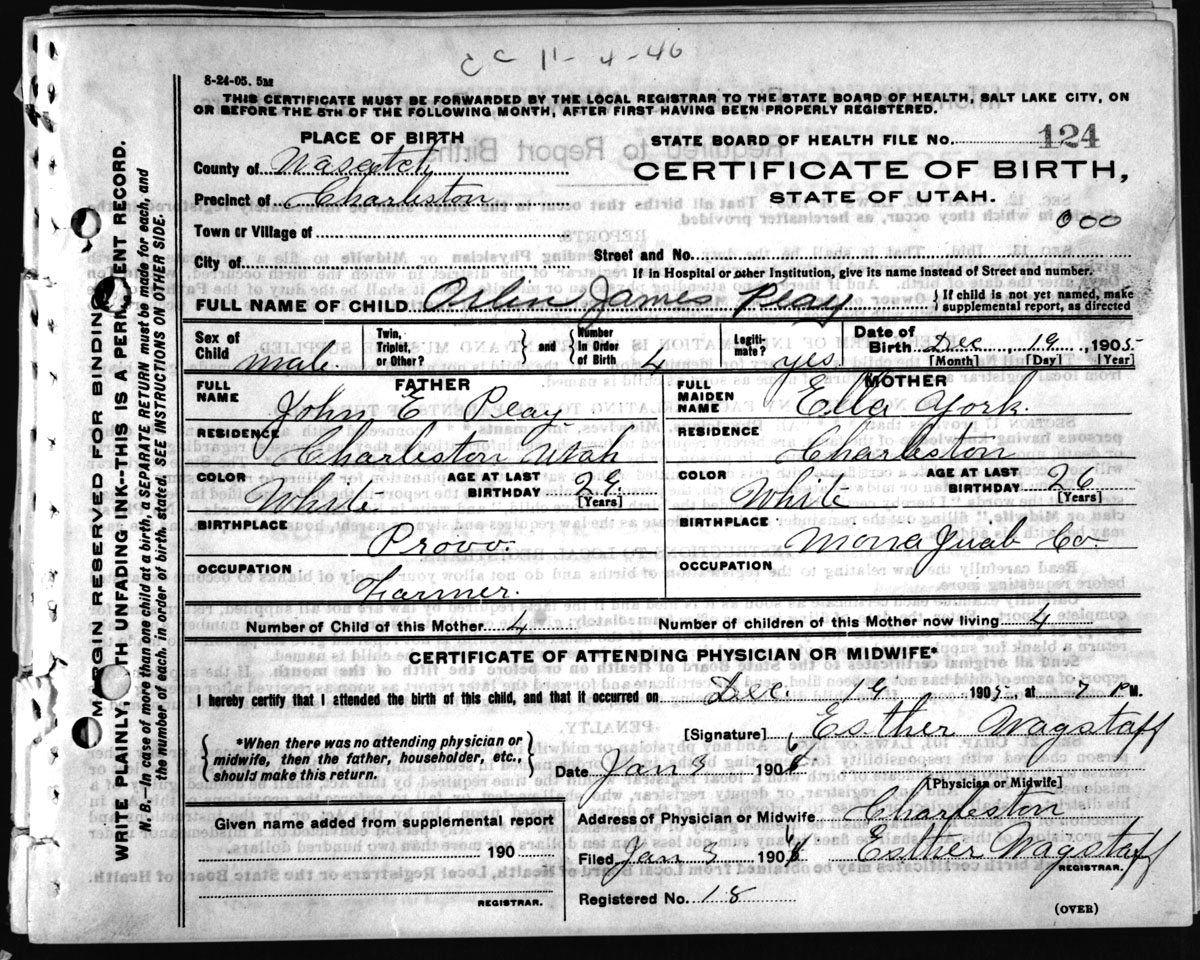 EC 11-4-46
8-24-05. 5M
THIS CERTIFICATE MUST BE FORWARDED BY THE LOCAL REGISTRAR TO THE STATE BOARD OF HEALTH, SALT LAKE CITY, ON
OR BEFORE THE 5TH OF THE FOLLOWING MONTH, AFTER FIRST HAVING BEEN PROPERLY REGISTERED.
PLACE OF BIRTH
STATE BOARD OF HEALTH FILE No. 124
County of Wasatch
CERTIFICATE OF BIRTH,
Precinct of Charleston
STATE OF UTAH.
Town or Village of
000
City of
Street and No.
If in Hospital or other Institution, give its name instead of Street and number.
FULL NAME OF CHILD Orlin James Peay { If child is not yet named, make
supplemental report, as directed
Sex of Child male Twin, Triplet, or Other? } and { Number in Order of Birth 4 Legiti- mate? yes Date of Birth Dec 19, 1905
[Month] [Day] [Year]
FATHER
MOTHER
FULL NAME John E Peay
FULL MAIDEN NAME Ella York.
RESIDENCE Charleston Utah
RESIDENCE Charleston
COLOR White AGE AT LAST BIRTHDAY 29 [Years]
COLOR White AGE AT LAST BIRTHDAY 26 [Years]
BIRTHPLACE Provo.
BIRTHPLACE Mona Juab Co.
OCCUPATION Farmer.
OCCUPATION
Number of Child of this Mother 4 Number of children of this Mother now living 4
CERTIFICATE OF ATTENDING PHYSICIAN OR MIDWIFE*
I hereby certify that I attended the birth of this child, and that it occurred on Dec. 19 1905, at 7 P M.
*When there was no attending physician or
midwife, then the father, householder, etc.,
should make this return.
[Signature] Esther Wagstaff
Date Jan 8 1906
[Physician or Midwife]
Given name added from supplemental report
190
REGISTRAR.
Address of Physician or Midwife Charleston
Filed Jan 8 1906 Esther Wagstaff
REGISTRAR.
Registered No. 18
(OVER)
MARGIN RESERVED FOR BINDING
WRITE PLAINLY WITH UNFADING INK--THIS IS A PERMANENT RECORD.
N. B.—In case of more than one child at a birth, a SEPARATE RETURN must be made for each, and
the number of each, in order of birth, stated. SEE INSTRUCTIONS ON OTHER SIDE.